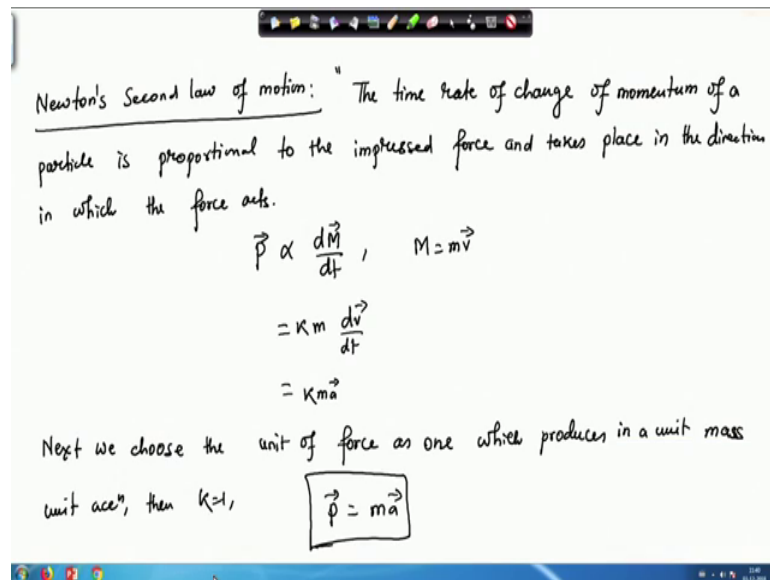 Newton's Second law of motion: "The time rate of change of momentum of a
particle is proportional to the impressed force and takes place in the direction
in which the force acts.
P⃗ ∝ dM⃗/dt , M = mv⃗
= Km dv⃗/dt
= Kma⃗
Next we choose the unit of force as one which produces in a unit mass
unit accⁿ, then K=1, P⃗ = ma⃗